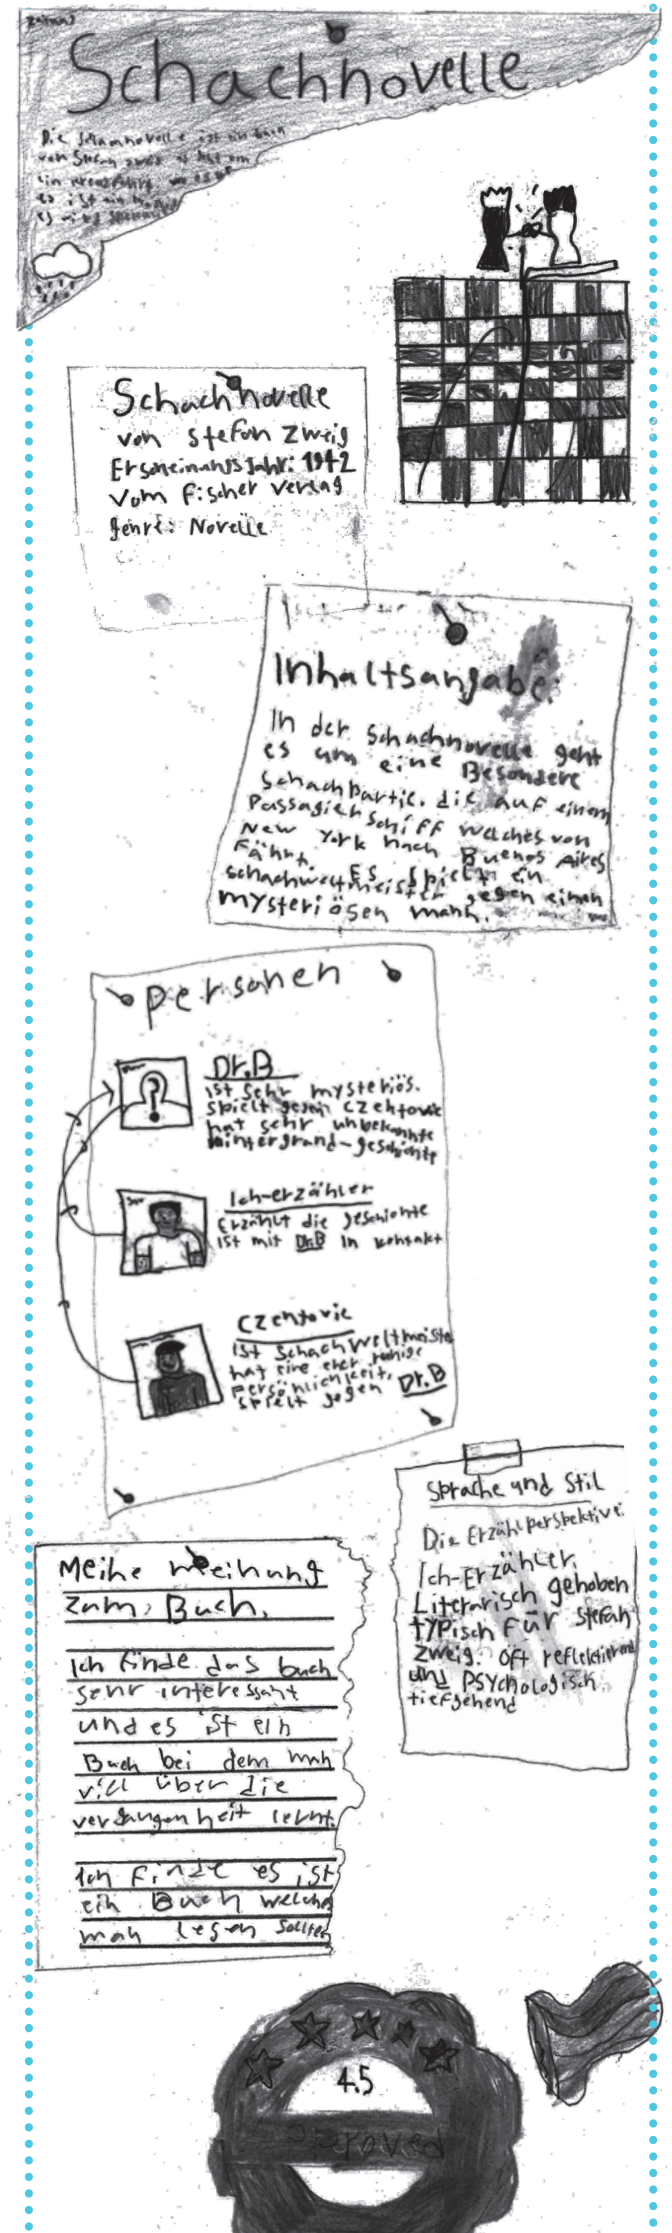 Zeitung
Schachnovelle
Die Schachnovelle ist ein Buch
von Stefan Zweig es
ein
es ist ein
es wird
Schachnovelle
von Stefan Zweig
Erscheinungsjahr: 1942
Vom Fischer Verlag
genre: Novelle
Inhaltsangabe:
In der Schachnovelle geht
es um eine Besondere
Schachpartie, die auf einem
Passagierschiff welches von
New York nach Buenos Aires
Fährt. ES spielt ein
schachweltmeister gegen einen
mysteriösen mann.
personen
Dr.B
ist sehr mysteriös.
spielt gegen Czentovic
hat sehr unbekannte
hintergrund-geschichte
Ich-erzähler
Erzählt die geschichte
ist mit Dr.B in kontakt
Czentovic
ist Schachweltmeister
hat eine eher ruhige
persönlichkeit,
spielt gegen Dr.B
Sprache und Stil
Die Erzählperspektive:
Ich-Erzähler.
Literarisch gehoben
typisch für Stefan
Zweig. Oft reflektierend
und psychologisch
tiefgehend
Meine meinung
zum Buch.
Ich finde das buch
sehr interessant
und es ist ein
Buch bei dem man
viel über die
vergangenheit lernt.
Ich finde es ist
ein Buch welches
man lesen sollte
4.5
approved